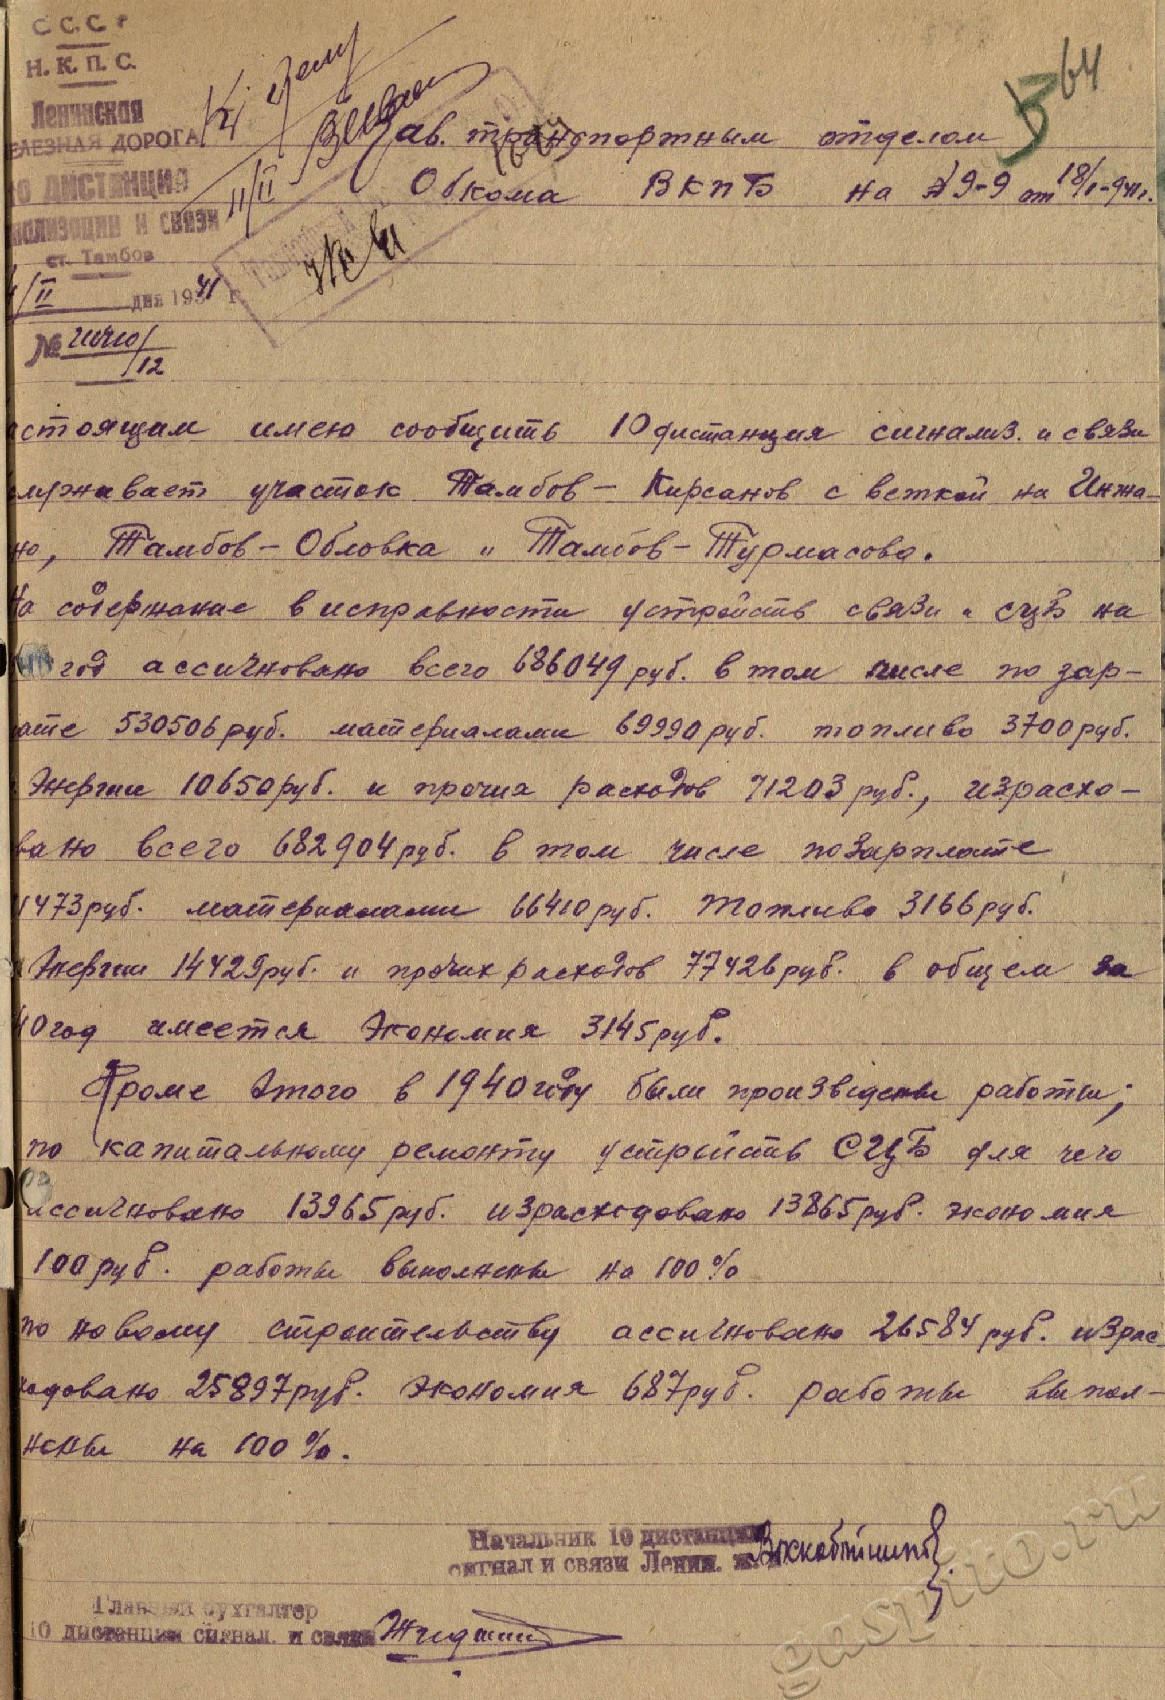 С.С.С.Р
Н.К.П.С.
Ленинская
ЕЛЕЗНАЯ ДОРОГА
10 ДИСТАНЦИЯ
нализации и связи
ст. Тамбов
/II дня 1941 г.
№
/12
К делу
11/II
64
Зав. транспортным отделом
Обкома ВКПБ на №9-9 от 18/I-941г.
астоящим имею сообщить 10 дистанция сигнализ. и связи
служивает участок Тамбов – Кирсанов с веткой на Инжа-
но, Тамбов – Обловка и Тамбов – Турмасово.
На содержание в исправности устройств связи и СЦБ на
год ассигновано всего 686049 руб. в том числе по зар-
лате 530506 руб. материалами 69990 руб. топливо 3700 руб.
Энергии 10650 руб. и прочих расходов 71203 руб., израсхо-
вано всего 682904 руб. в том числе по зарплате
1473 руб. материалами 66410 руб. топливо 3166 руб.
Энергии 14429 руб. и прочих расходов 77426 руб. в общем за
40 год имеется экономия 3145 руб.
Кроме этого в 1940 году были произведены работы;
по капитальному ремонту устройств СЦБ для чего
ассигновано 13965 руб. израсходовано 13865 руб. экономия
100 руб. работы выполнены на 100%
по новому строительству ассигновано 26584 руб. израс-
ходовано 25897 руб. экономия 687 руб. работы выпол-
нены на 100%.
Начальник 10 дистанции
сигнал и связи Ленин. ж.
Главный бухгалтер
10 дистанции сигнал. и связи
gaspito.ru